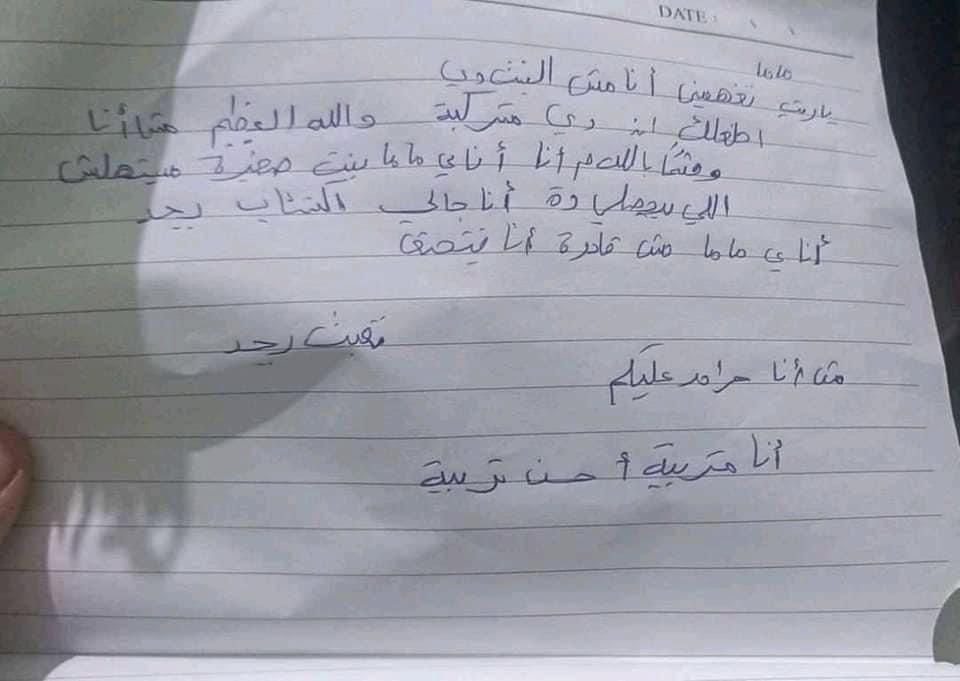 DATE :
ماما
ياريت تفهمينى أنا مش البنت دي
اطصلك ان دي متركبة والله العظيم مش أنا
وقسمًا بالله م أنا أنا ي ماما بنت صغيرة مستهلش
اللي بيحصلي دة أنا جالي اكتئاب بجد
أنا ي ماما مش قادرة أنا بتخنق
تعبت بجد
مش أنا حرام عليكم
أنا متربية أحسن تربية